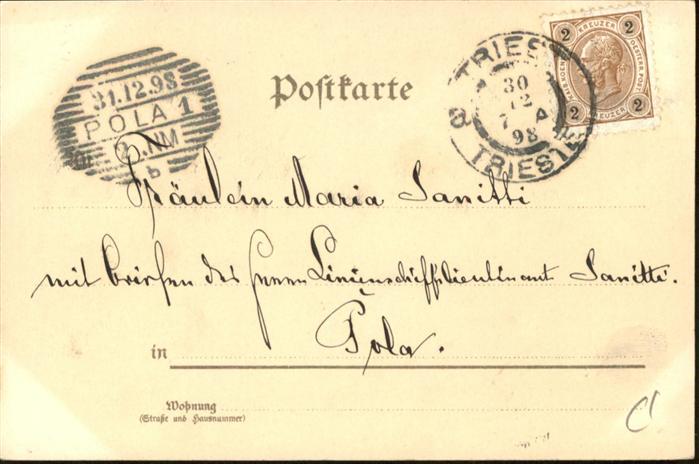 31.12.98
POLA 1
NM
b
Postkarte
TRIEST
30
12
7 A
98
TRIESTE
2 KREUZER 2
2 KREUZER 2
Fräulein Maria Sanitti
mit Briefen des Herrn Linienschiffslieutenant Sanitti.
Pola.
in
Wohnung
(Straße und Hausnummer)